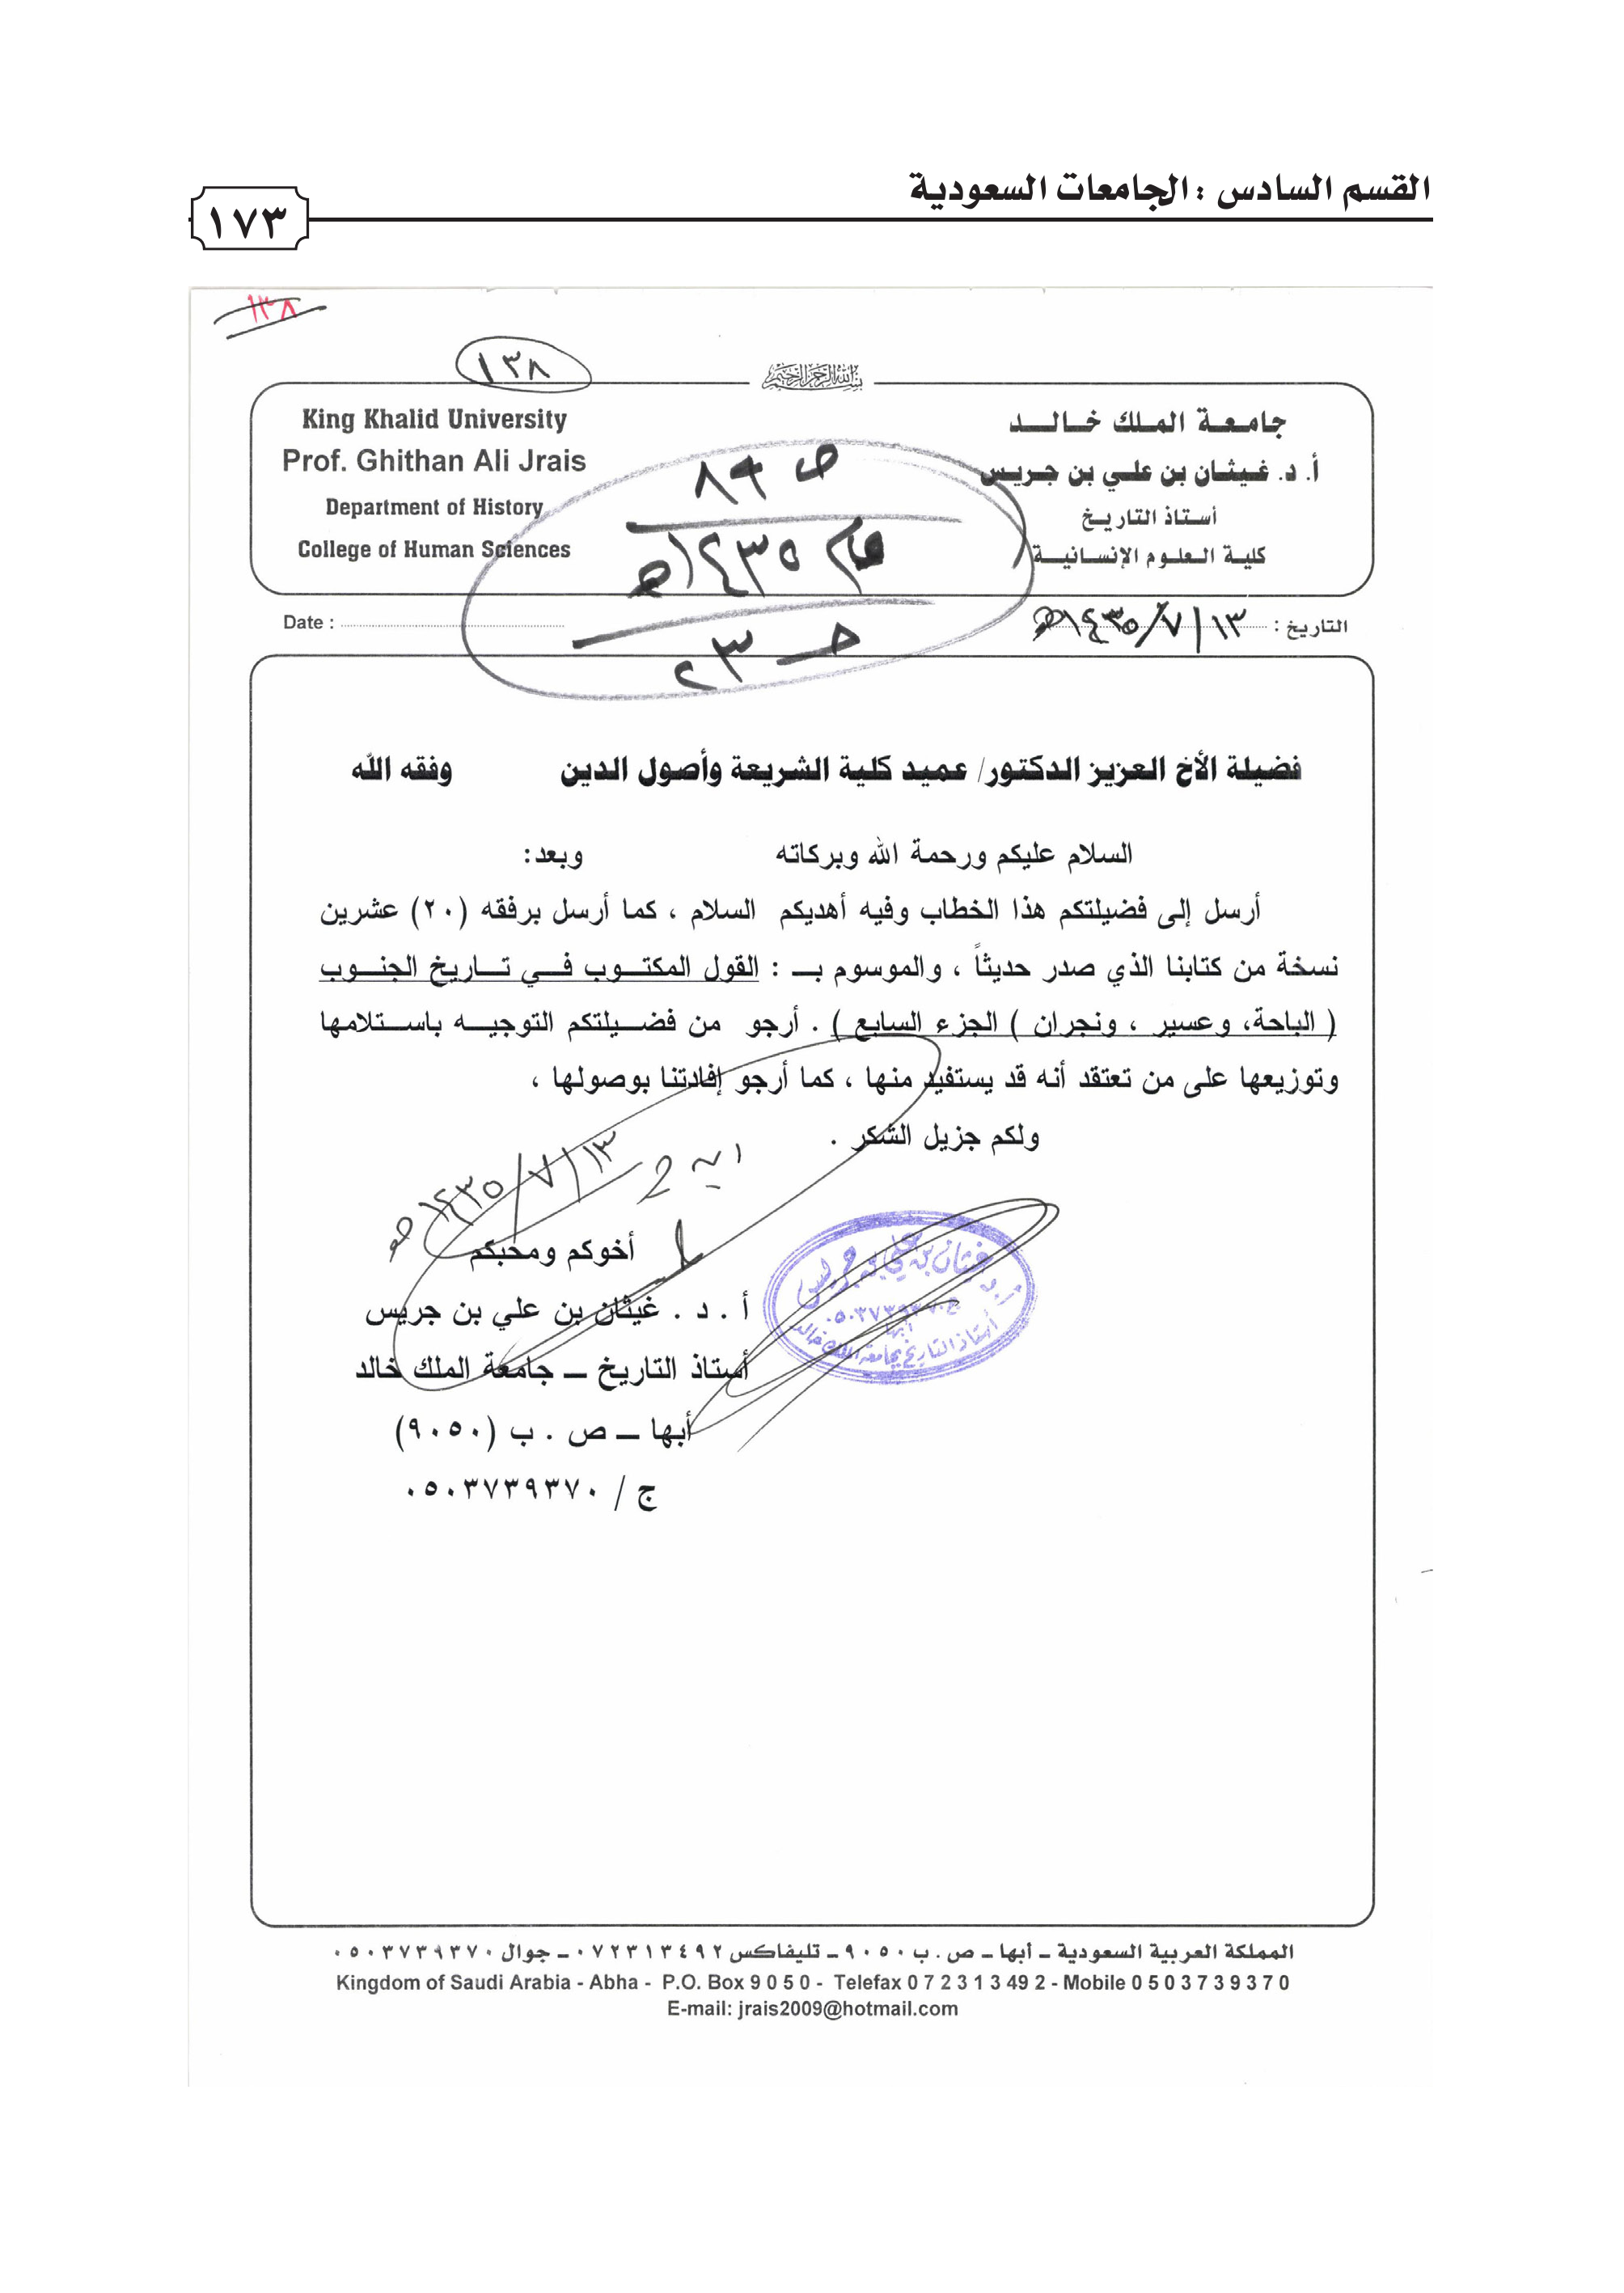 القسم السادس : الجامعات السعودية
١٧٣
١٣٨
١٣٨
بسم الله الرحمن الرحيم
جامعة الملك خالد
أ. د. غيثان بن علي بن جريس
أستاذ التاريخ
كلية العلوم الإنسانية
King Khalid University
Prof. Ghithan Ali Jrais
Department of History
College of Human Sciences
ص ٨٩
عام ١٤٣٥هـ
التاريخ : ١٣/٧/١٤٣٥هـ
Date :
فضيلة الأخ العزيز الدكتور/ عميد كلية الشريعة وأصول الدين وفقه الله
السلام عليكم ورحمة الله وبركاته وبعد:
أرسل إلى فضيلتكم هذا الخطاب وفيه أهديكم السلام ، كما أرسل برفقه (٢٠) عشرين
نسخة من كتابنا الذي صدر حديثاً ، والموسوم بـ : القول المكتوب في تاريخ الجنوب
( الباحة، وعسير ، ونجران ) الجزء السابع ) . أرجو من فضيلتكم التوجيه باستلامها
وتوزيعها على من تعتقد أنه قد يستفيد منها ، كما أرجو إفادتنا بوصولها ،
ولكم جزيل الشكر .
١٣/٧/١٤٣٥هـ
أخوكم ومحبكم
أ . د . غيثان بن علي بن جريس
أستاذ التاريخ ـ جامعة الملك خالد
أبها ـ ص . ب (٩٠٥٠)
ج / ٠٥٠٣٧٣٩٣٧٠
أ. د. غيثان بن علي بن جريس
ج. ٠٥٠٣٧٣٩٣٧٠
أبها
أستاذ التاريخ بجامعة الملك خالد
المملكة العربية السعودية ـ أبها ـ ص . ب ٩٠٥٠ ـ تليفاكس ٠٧٢٣١٣٤٩٢ ـ جوال ٠٥٠٣٧٣٩٣٧٠
Kingdom of Saudi Arabia - Abha - P.O. Box 9 0 5 0 - Telefax 0 7 2 3 1 3 49 2 - Mobile 0 5 0 3 7 3 9 3 7 0
E-mail: jrais2009@hotmail.com